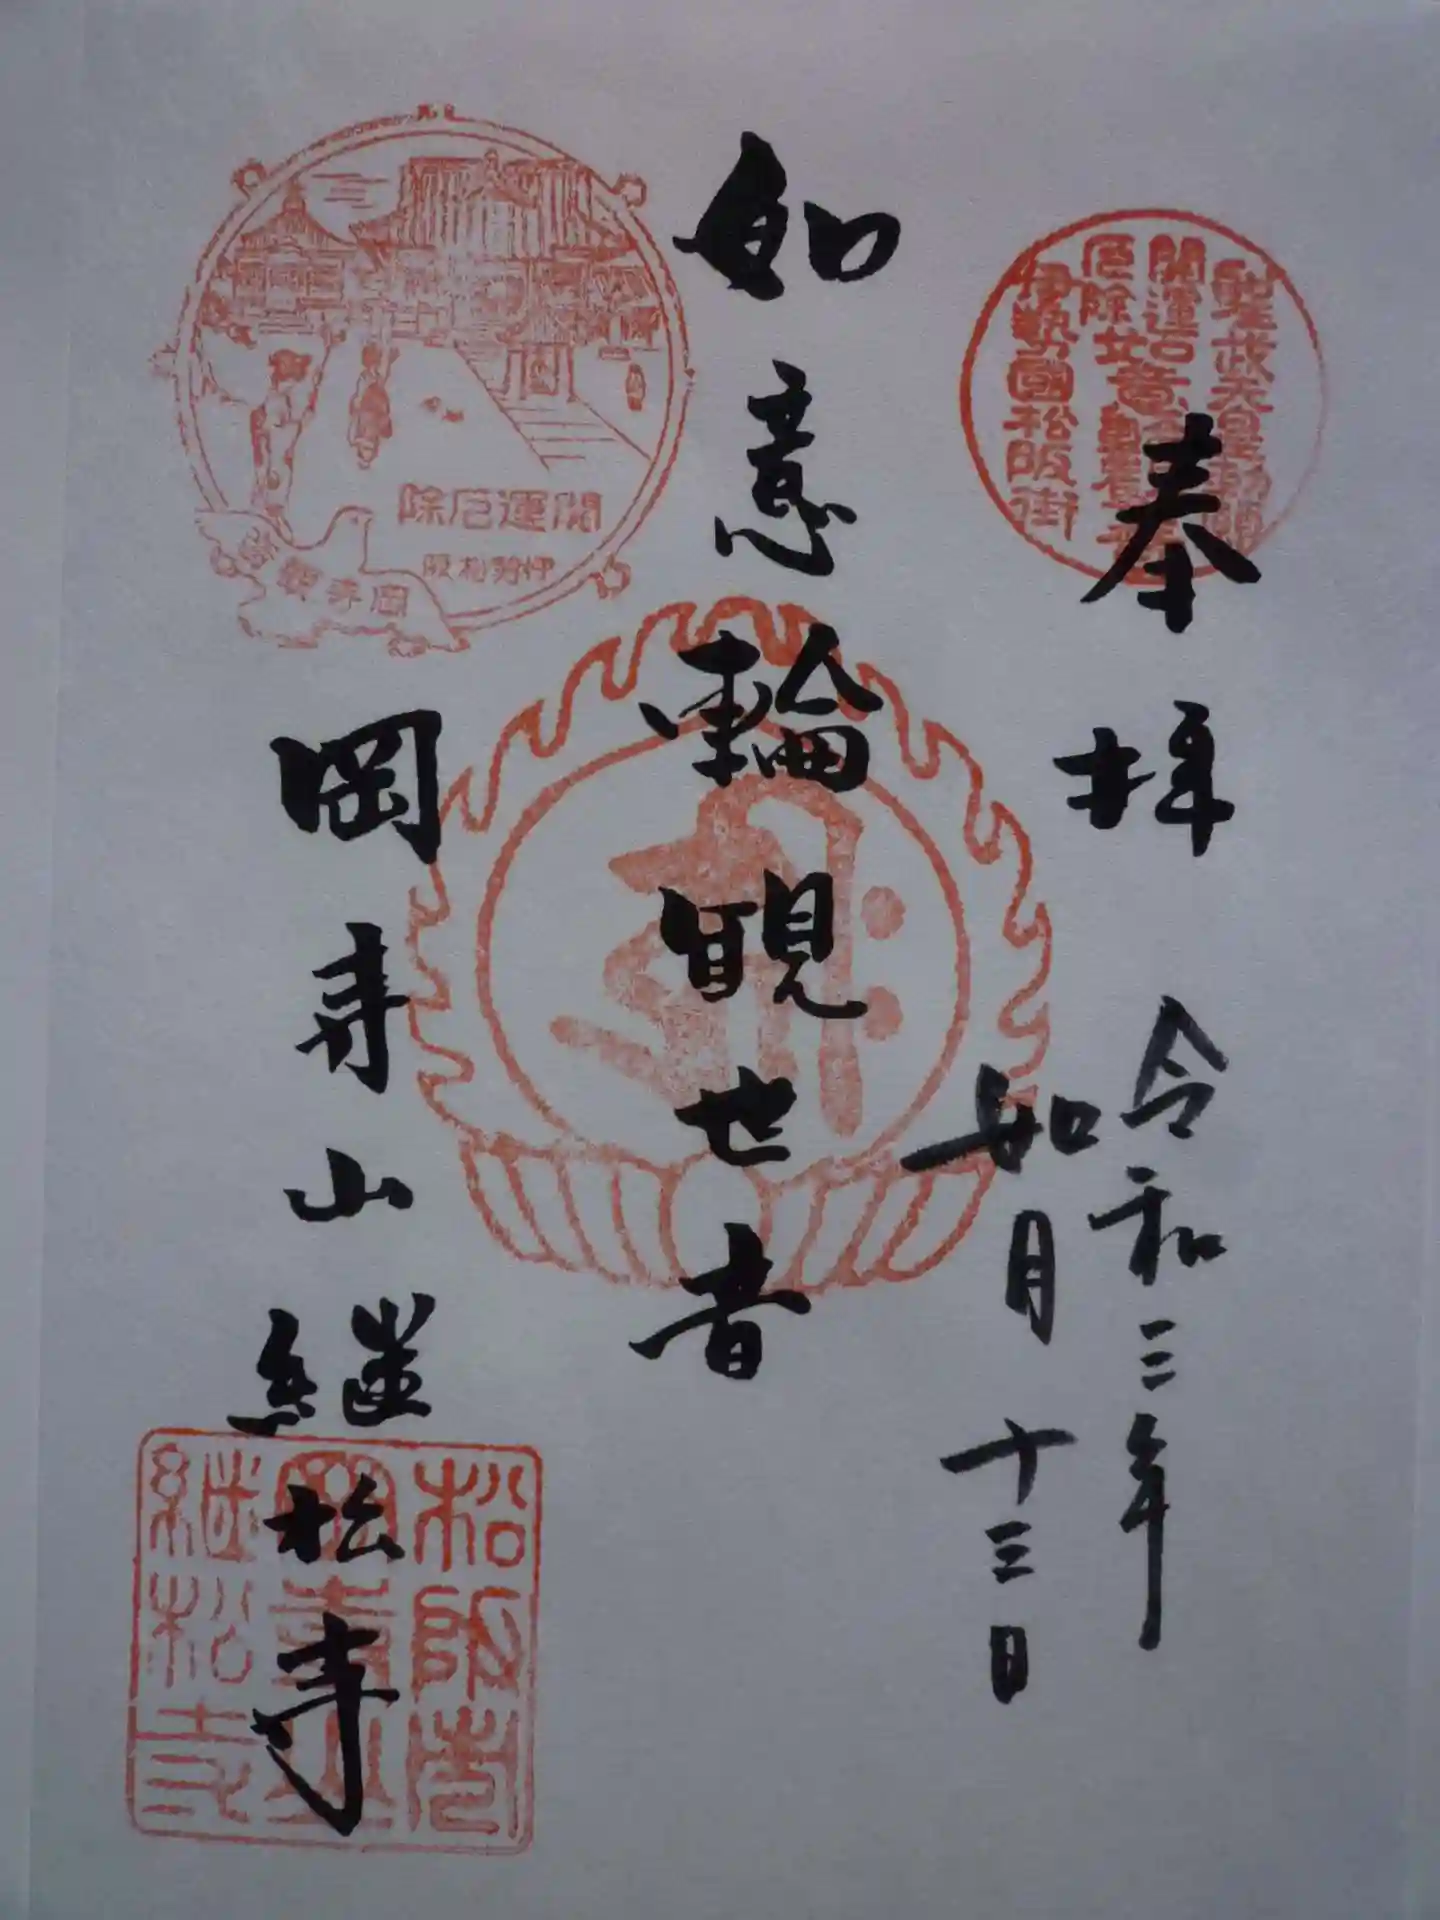 奉拝
令和三年
如月十三日
聖武天皇勅願
開運
厄除如意
伊勢國松阪街
如意輪観世音
岡寺山継松寺
開運厄除
伊勢松阪
岡寺観
松阪市
岡寺山
継松寺